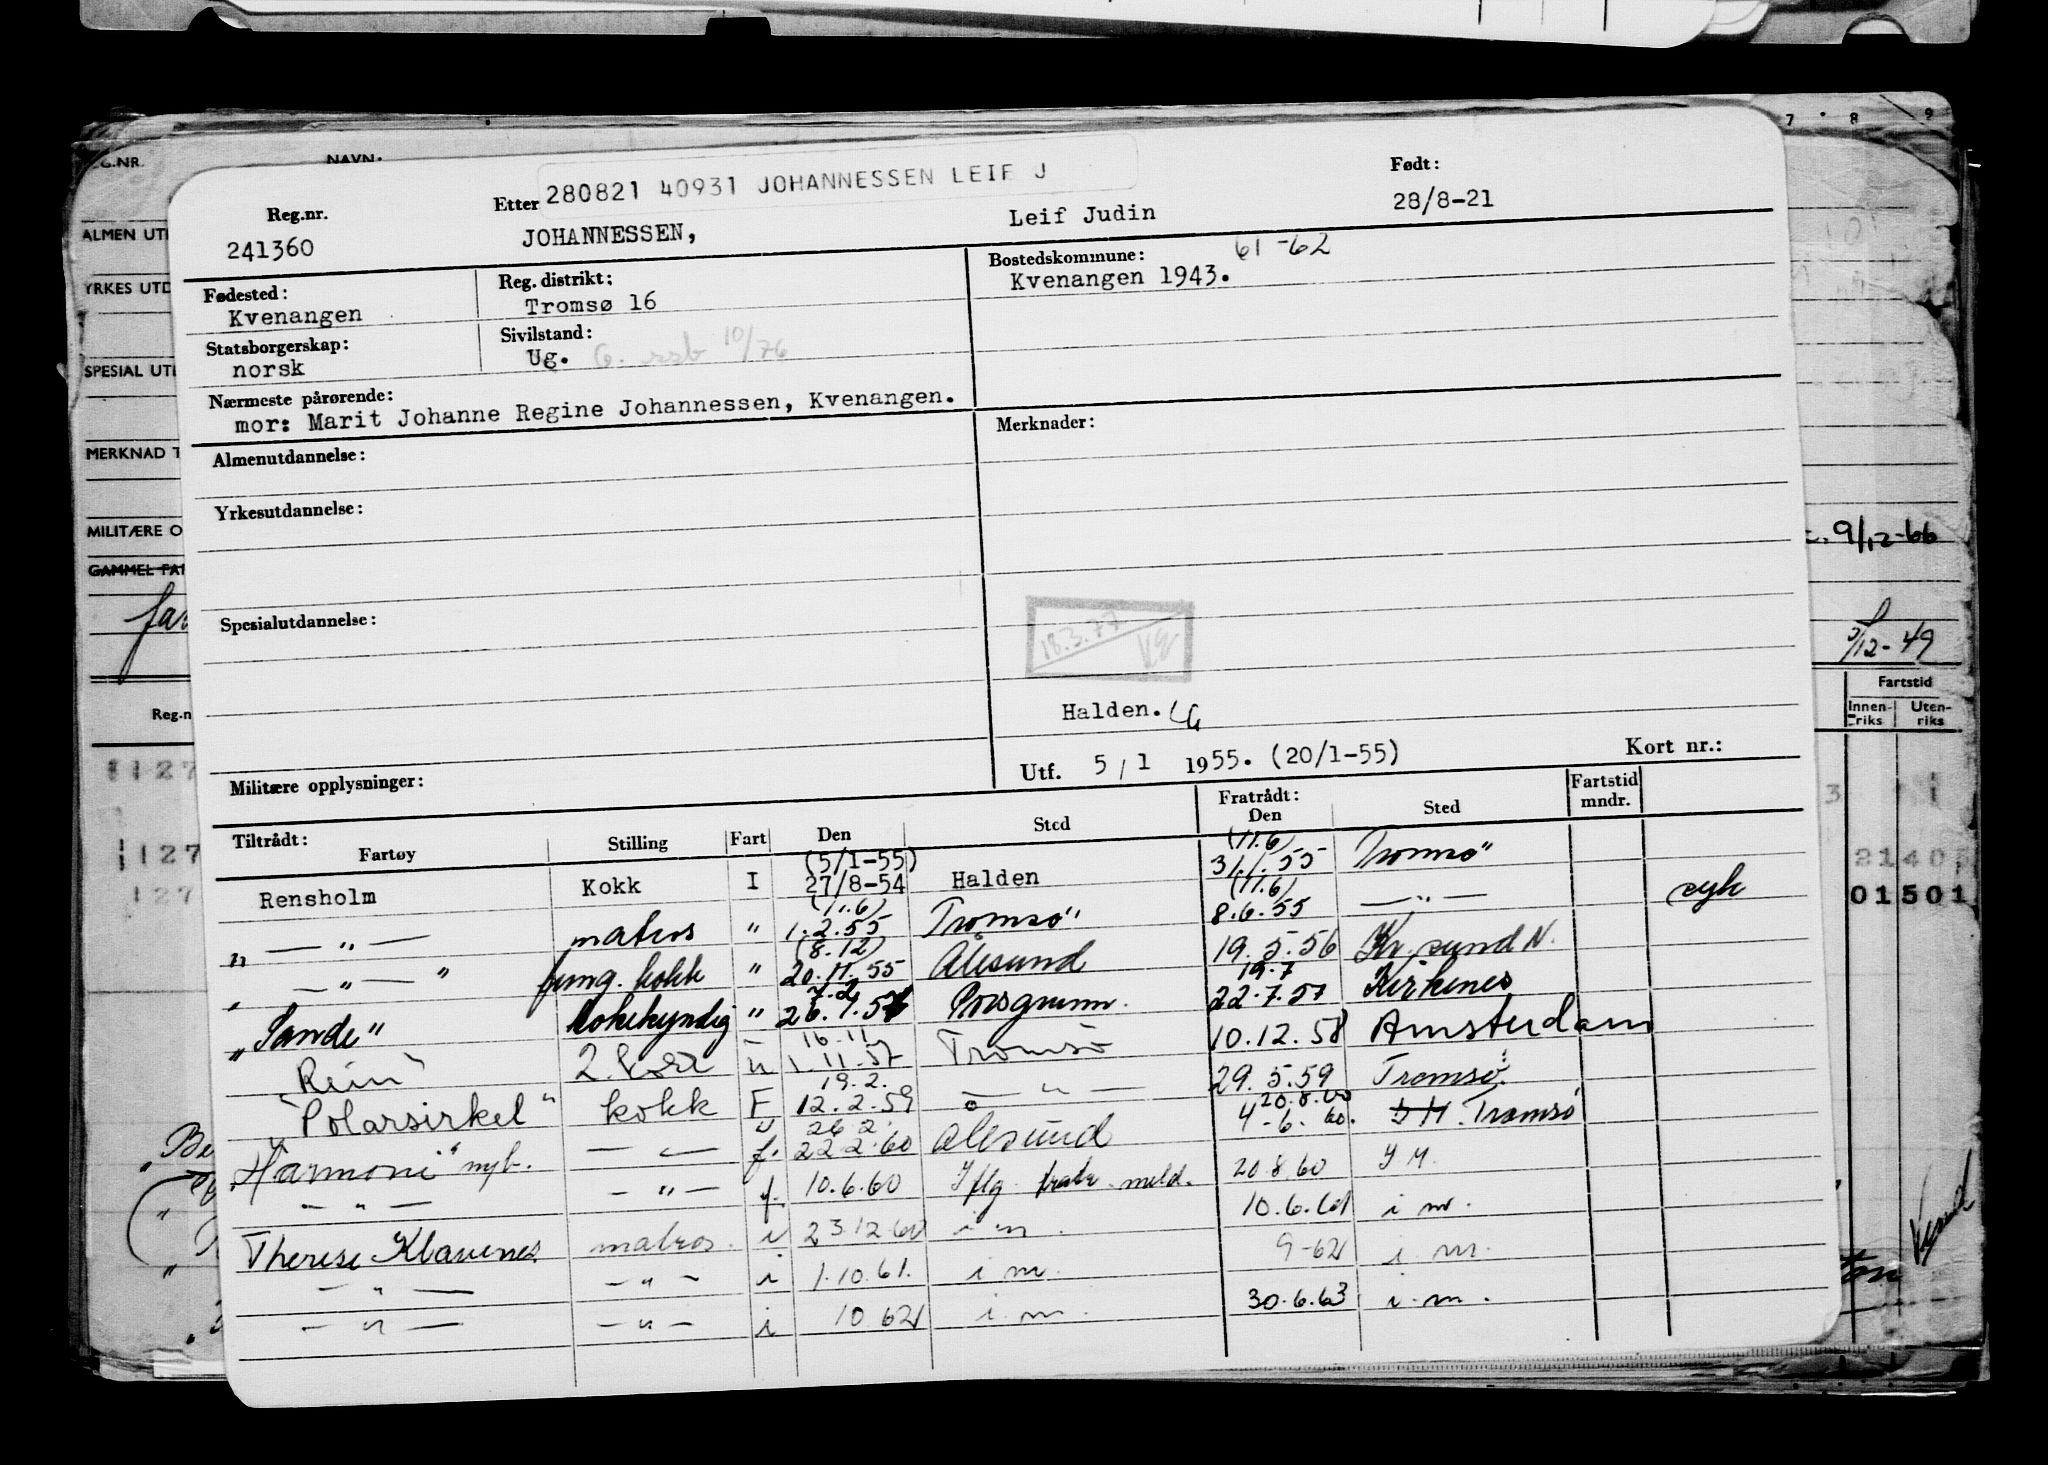 7 8 9
G.NR. NAVN:
280821 40931 JOHANNESSEN LEIF J
Reg.nr. Etter Født:
241360 JOHANNESSEN, Leif Judin 28/8-21
Fødested: Reg. distrikt: Bostedskommune: 61-62
Kvenangen Tromsø 16 Kvenangen 1943.
Statsborgerskap: Sivilstand:
norsk Ug. G. ssb 10/76
Nærmeste pårørende:
mor: Marit Johanne Regine Johannessen, Kvenangen.
Almenutdannelse: Merknader:
Yrkesutdannelse:
Spesialutdannelse:
18.3.77
Halden.
Militære opplysninger: Utf. 5/1 1955. (20/1-55) Kort nr.:
Tiltrådt: Fratrådt: Fartstid
Fartøy Stilling Fart Den Sted Den Sted mndr.
(5/1-55) (11.6)
Rensholm Kokk I 27/8-54 Halden 31.1.55 Tromsø
(11.6) (11.6)
" — " — matros " 1.2.55 Tromsø 8.6.55 — " — syk
(8.12)
" — " — " fung. kokk " 20.11.55 Ålesund 19.5.56 Kr.sund N.
7.2 19.7
"Sande" kokekyndig " 26.1.57 Porsgrunn. 22.7.57 Kirkenes
16.11
"Rein" 2. kokk u 1.11.57 Tromsø 10.12.58 Amsterdam
19.2.
"Polarsirkel" kokk F 12.2.59 — " — 29.5.59 Tromsø.
26.2. 20.8.60
"Harmoni" nyb. — " — f. 22.2.60 Ålesund 4-6.60. I M. Tromsø
— " — — " — f. 10.6.60 Iflg. fratr. meld. 20.8.60 I M.
Therese Klavenes matros. i 23.12.60 i m. 10.6.61 i m.
— " — — " — i 1.10.61. i m. 9-62 i m.
— " — — " — i 10.62 i. m. 30.6.63 i. m.
ALMEN UT
YRKES UTD
SPESIAL UT
MERKNAD T
MILITÆRE O
GAMMEL FA
Reg.n
1127
1127
127
9/12-66
3/12-49
Fartstid
Innen-riks Uten-riks
3
2140
01501